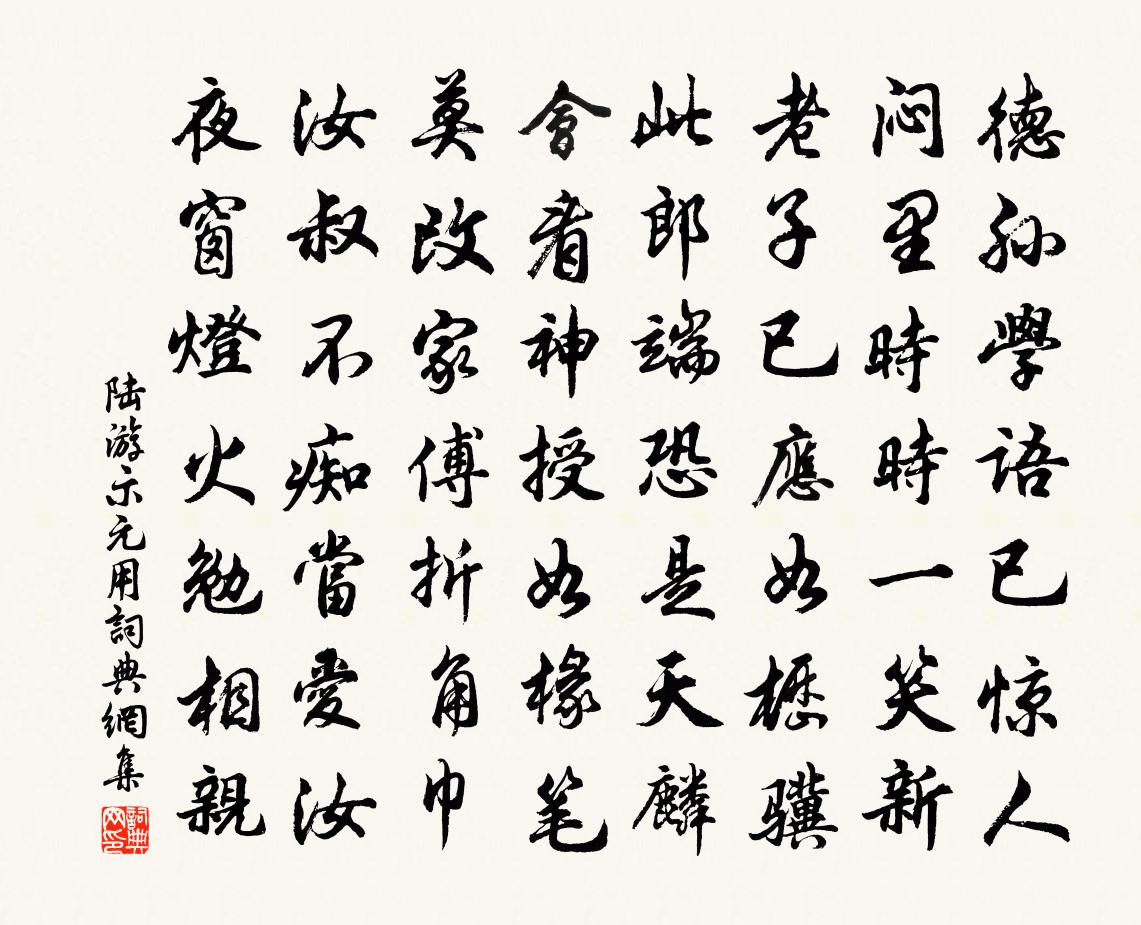 德孙學語已惊人
闷里時時一笑新
老子已應如櫪骥
此郎端恐是天麟
會看神授如椽笔
莫改家傅折角巾
汝叔不痴當愛汝
夜窗燈火勉相親
陆游示元用詞典網集
詞典网印